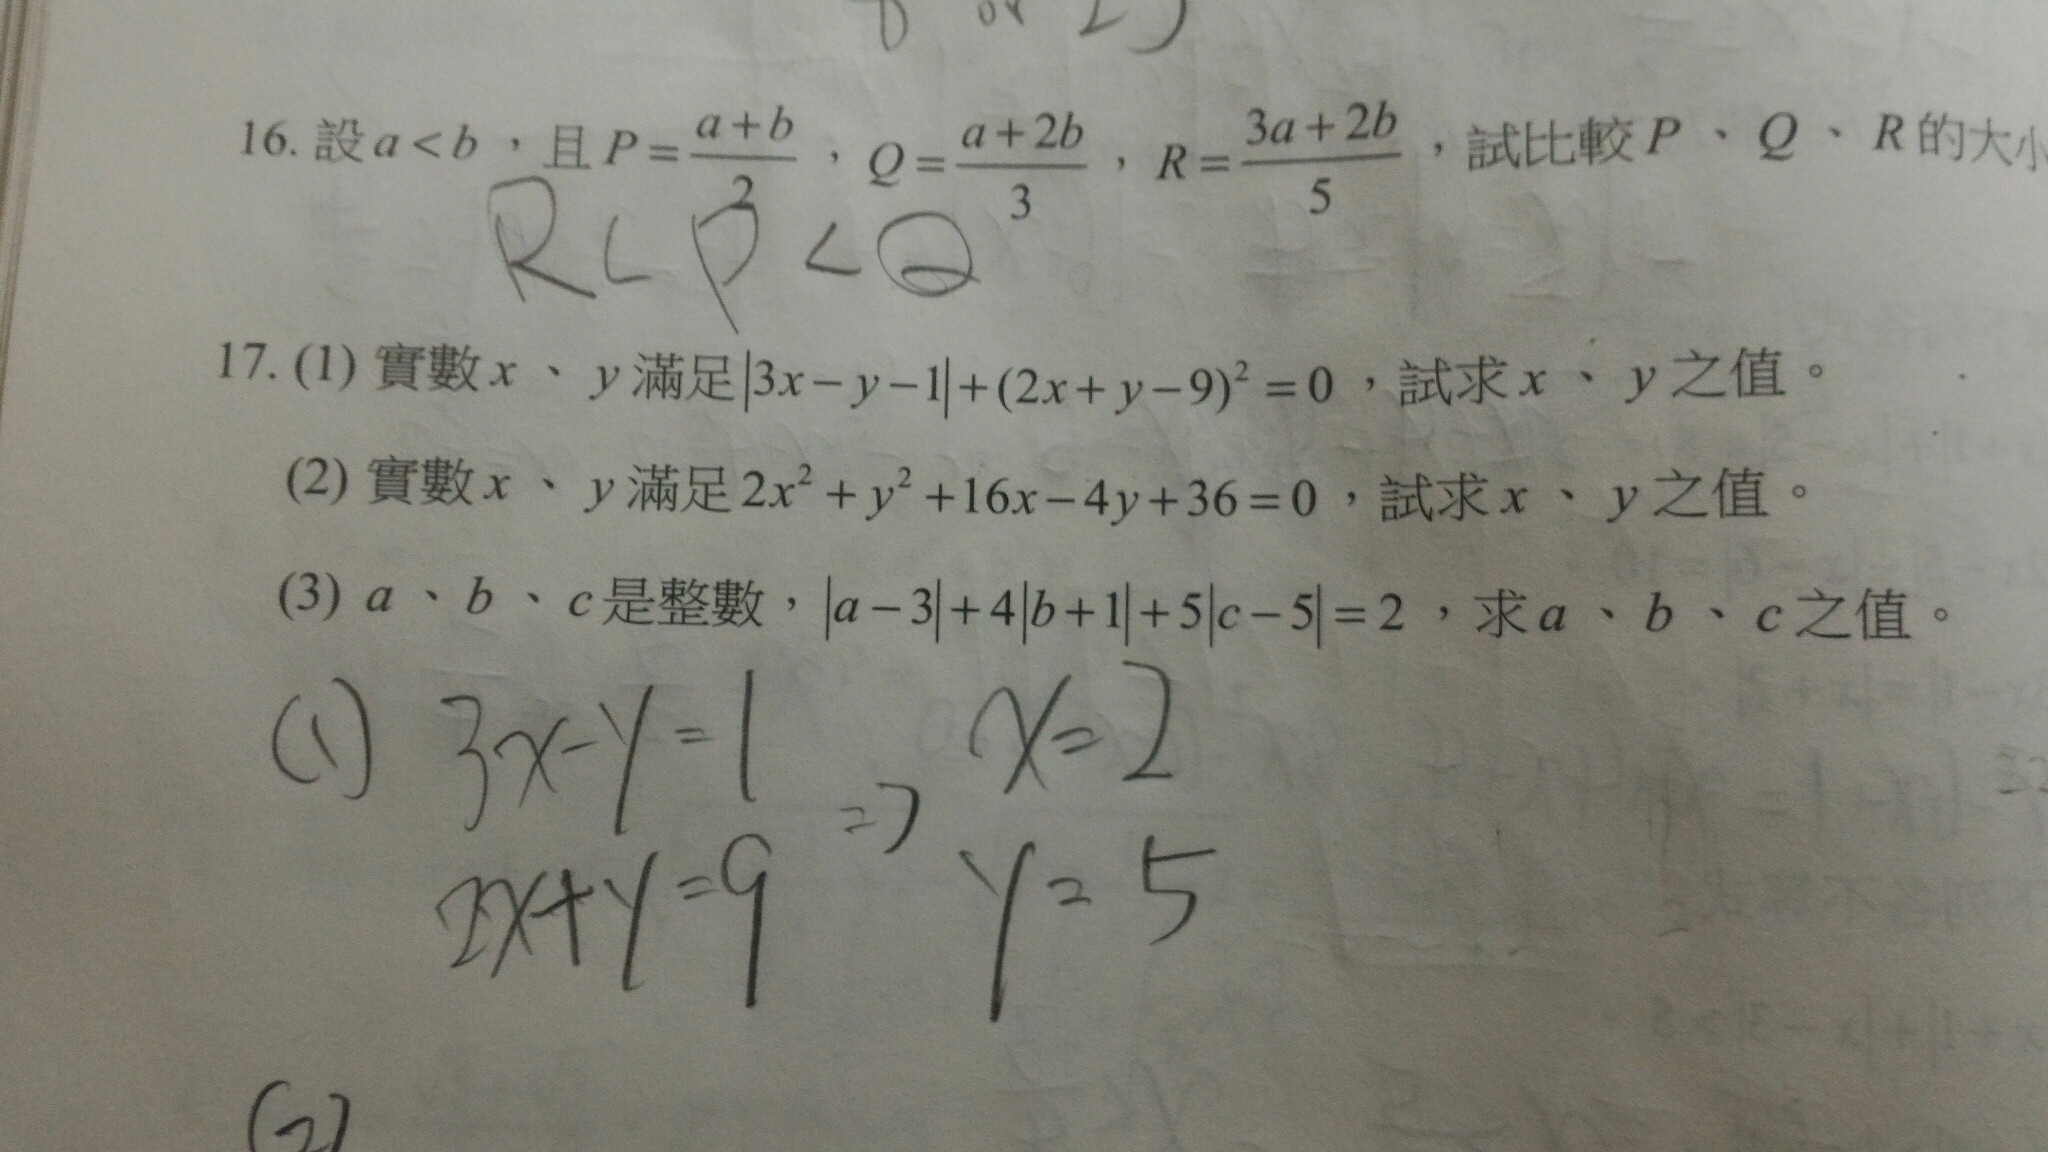 or 2)
16. 設 a < b，且 P = \frac{a+b}{2}，Q = \frac{a+2b}{3}，R = \frac{3a+2b}{5}，試比較 P、Q、R 的大小
R < P < Q
17. (1) 實數 x、y 滿足 |3x - y - 1| + (2x + y - 9)² = 0，試求 x、y 之值。
(2) 實數 x、y 滿足 2x² + y² + 16x - 4y + 36 = 0，試求 x、y 之值。
(3) a、b、c 是整數，|a - 3| + 4|b + 1| + 5|c - 5| = 2，求 a、b、c 之值。
(1) 3x - y = 1 => x = 2
2x + y = 9 y = 5
(2)